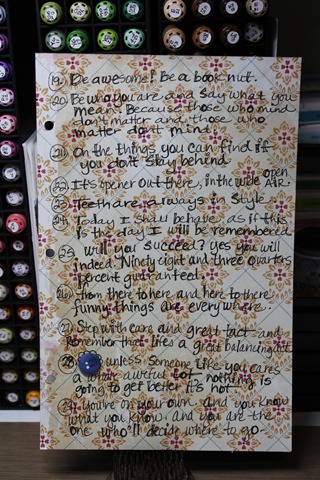 19. Be awesome! Be a book nut.
20. Be who you are and say what you
mean. Because those who mind
don't matter and those who
matter don't mind.
21. Oh the things you can find if
you don't stay behind
22. It's opener out there, in the wide open
AIR.
23. Teeth are always in style
24. Today I shall behave, as if this
is the day I will be remembered
25. will you succeed? Yes you will
indeed. Ninety eight and three quarters
percent guaranteed.
26. from there to here and here to there
funny things are everywhere.
27. Step with care and great tact and
Remember that life's a great balancing act
28. unless someone like you cares
a whole awful lot nothing is
going to get better it's not.
29. You're on your own. and you know
what you know. and you are the
one who'll decide where to go.